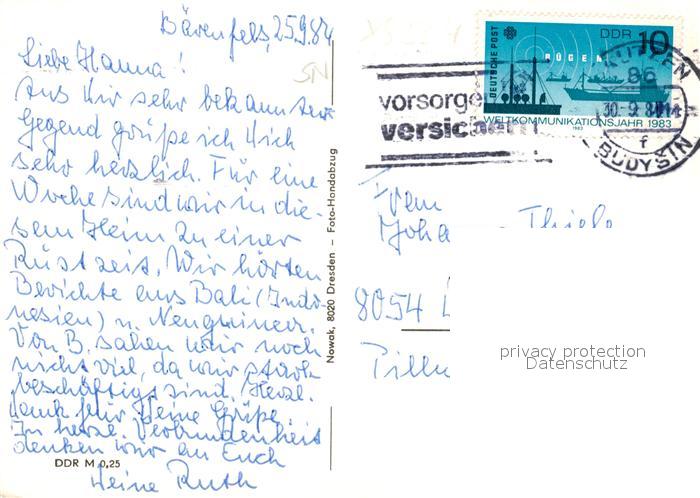 Bärenfels, 25.9.84
Liebe Hanna!
Aus Dir sehr bekannter
Gegend grüße ich Dich
sehr herzlich. Für eine
Woche sind wir in die-
sem Heim zu einer
Rüstzeit. Wir hörten
Berichte aus Bali (Indo-
nesien) u. Neuguinea.
Von B. sahen wir noch
nicht viel, da wir stark
beschäftigt sind. Herzl.
Dank für Deine Grüße.
In herzl. Verbundenheit
denken wir an Euch
Deine Ruth
DDR M 0,25
Nowak, 8020 Dresden – Foto-Handabzug
vorsorgen
versichern
DEUTSCHE POST
DDR 10
RÜGEN
WELTKOMMUNIKATIONSJAHR 1983
1983
86
30.-9.84
f
BUDYŠIN
Thiele
8054
privacy protection
Datenschutz